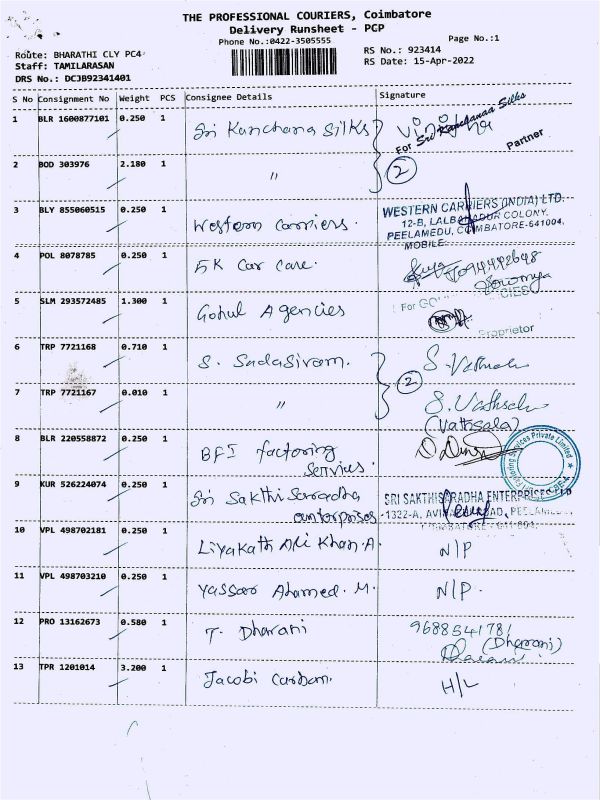 THE PROFESSIONAL COURIERS, Coimbatore
Delivery Runsheet - PCP
Phone No.:0422-3505555
Page No.:1
Route: BHARATHI CLY PC4
RS No.: 923414
Staff: TAMILARASAN
RS Date: 15-Apr-2022
DRS No.: DCJB92341401
S No Consignment No Weight PCS Consignee Details Signature
1 BLR 1600877101 0.250 1 Sri Kanchana Silks
For Sri Kanchanaa Silks
Partner
2 BOD 303976 2.180 1 " 2
3 BLY 855060515 0.250 1 Western Carriers.
WESTERN CARRIERS (INDIA) LTD.
12-B, LALBAHADUR COLONY,
PEELAMEDU, COIMBATORE-641004.
MOBILE:
4 POL 8078785 0.250 1 5K Car Care.
Sowmya
5 SLM 293572485 1.300 1 Gokul Agencies
For
Proprietor
6 TRP 7721168 0.710 1 S. Sadasivam. S. Vathsala
2
7 TRP 7721167 0.010 1 " S. Vathsala
(Vathsala)
8 BLR 220558872 0.250 1 BFI factoring
Services.
Factoring Services Private Limited
9 KUR 526224074 0.250 1 Sri Sakthi Saradha
enterprises
SRI SAKTHISARADHA ENTERPRISES
1322-A,
COIMBATORE - 641 004.
10 VPL 498702181 0.250 1 Liyakath Ali Khan.A. N/P
11 VPL 498703210 0.250 1 Yassar Ahamed.M. N/P.
12 PRO 13162673 0.580 1 T. Dharani 9688541781
(Dharani)
13 TPR 1201014 3.200 1 Jacobi Carbon. H/L